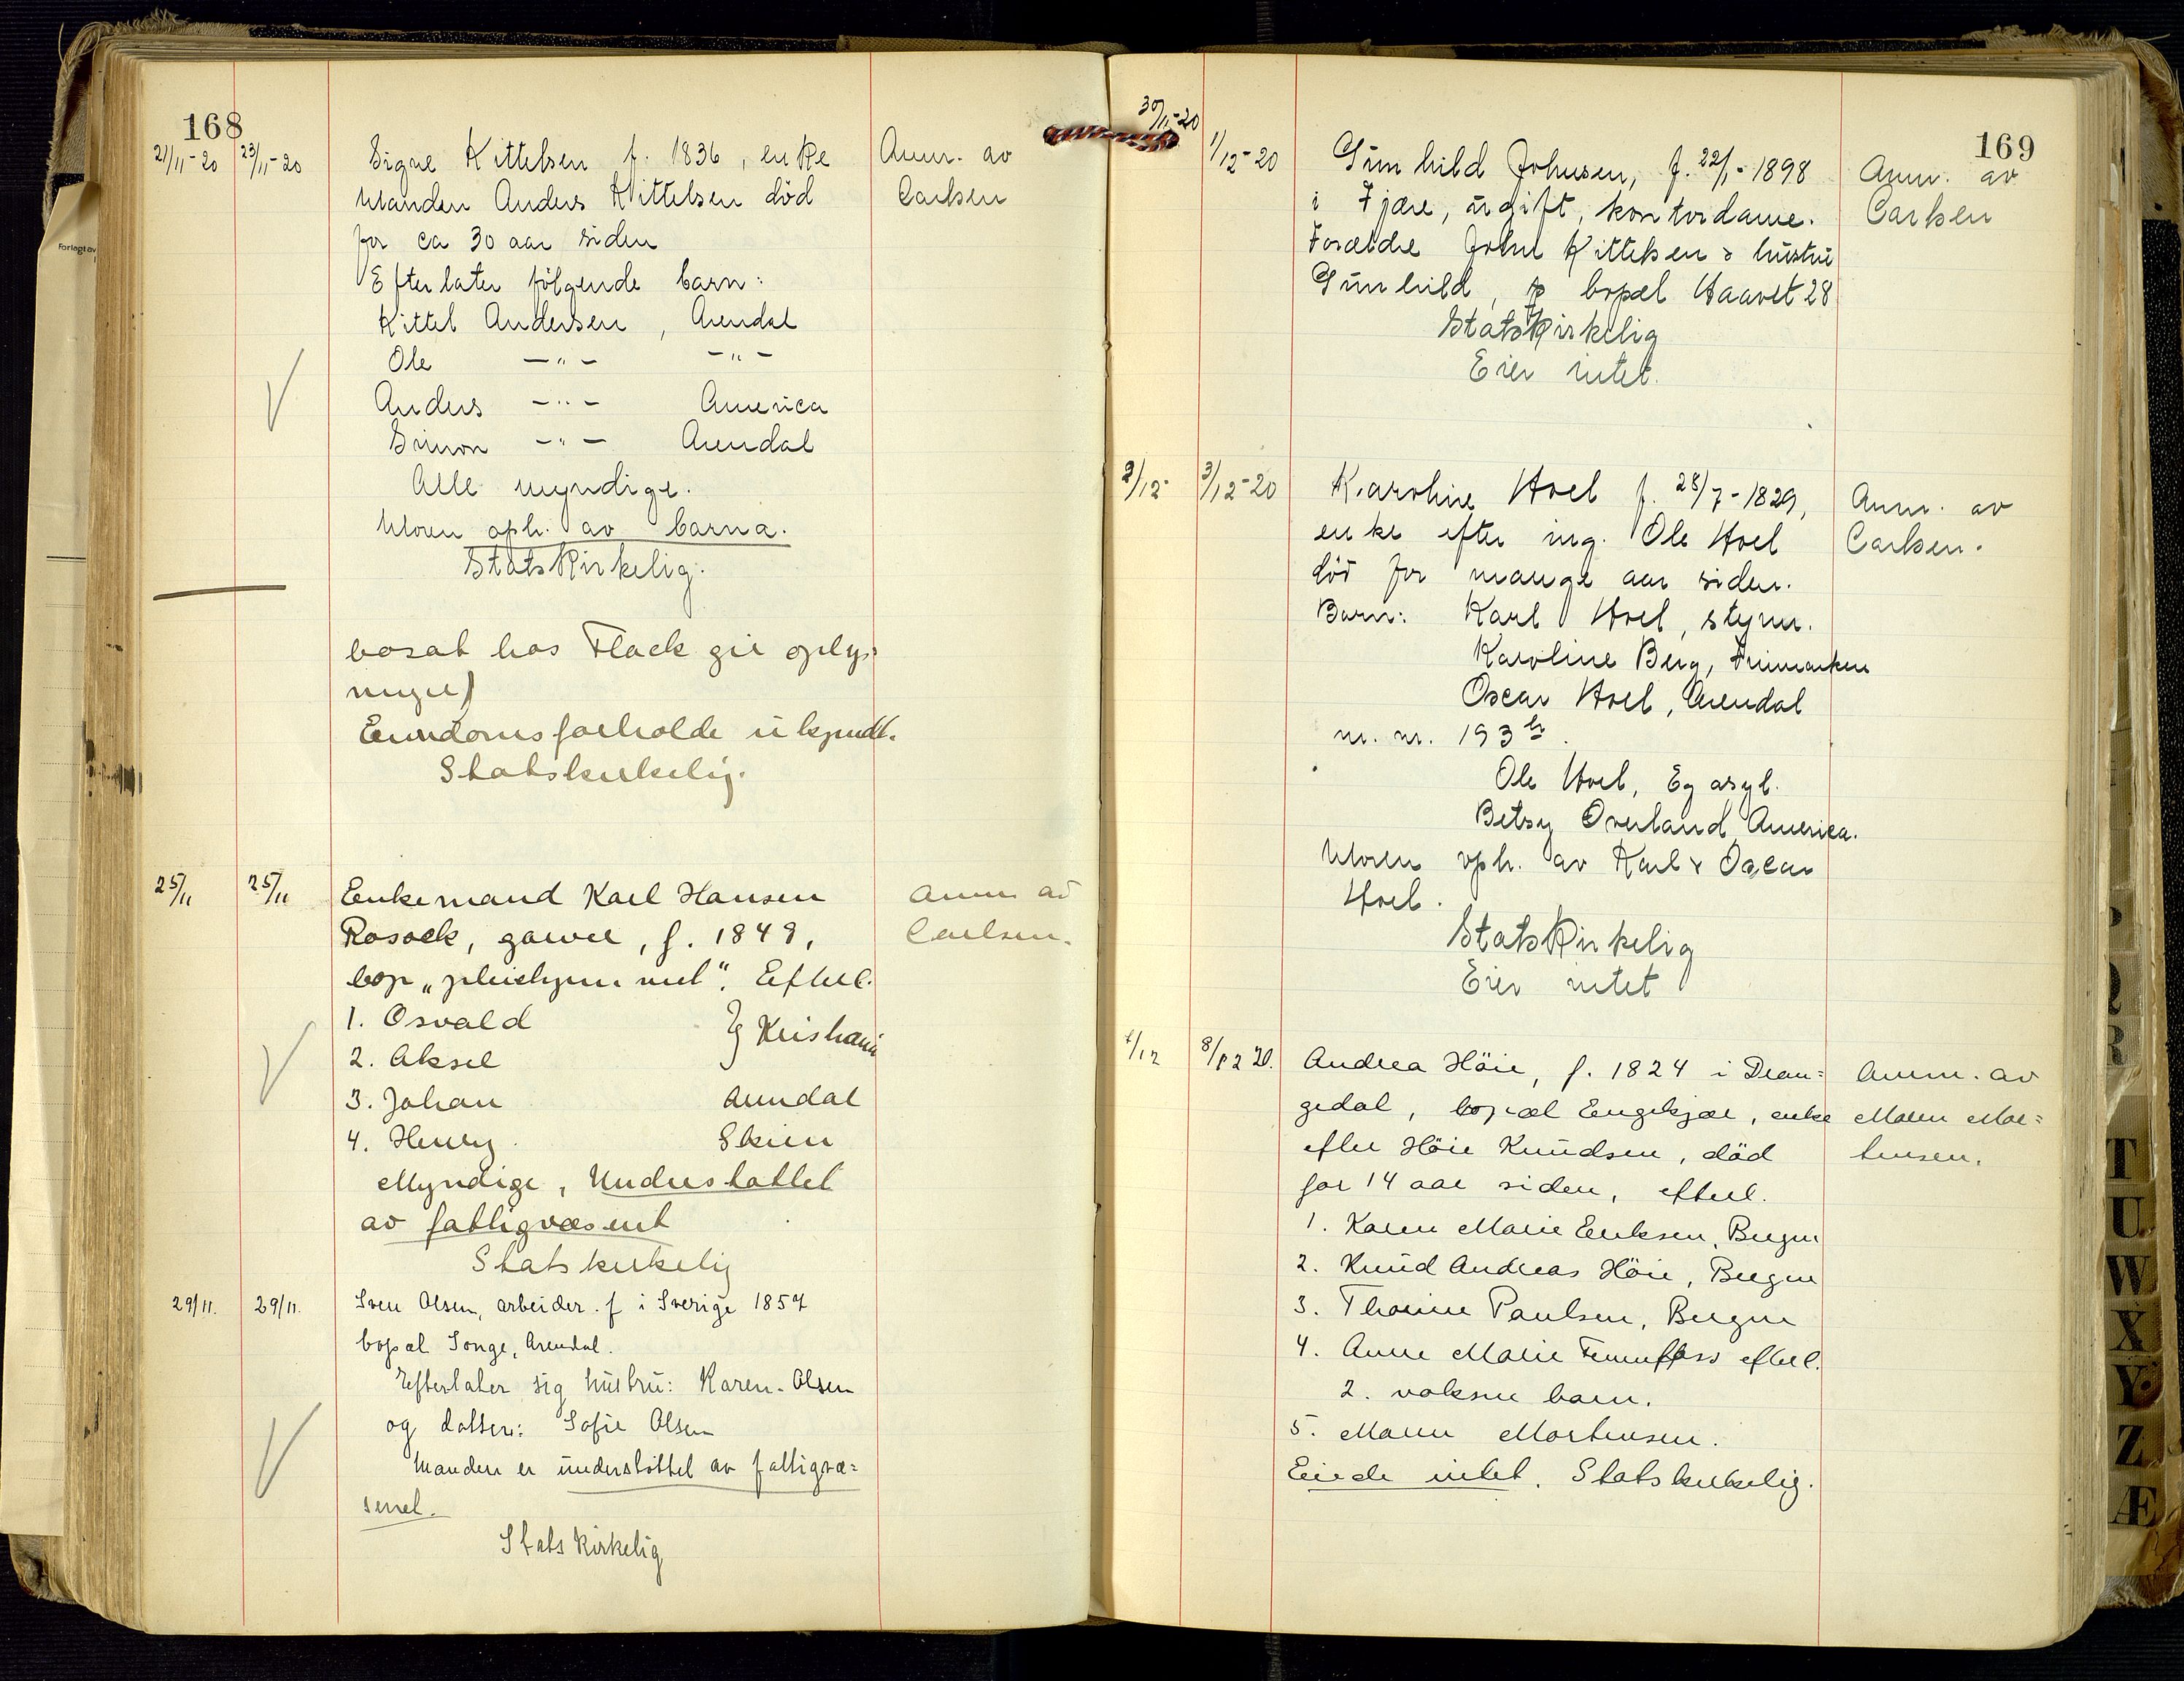 168
21/11-20 23/11-20 Signe Kittelsen f. 1836, enke Anm. av
Manden Anders Kittelsen död Carlsen
for ca 30 aar siden
Efterlater følgende barn:
Kittel Andersen, Arendal
Ole -"- -"-
Anders -"- America
Simon -"- Arendal
Alle myndige.
Moren oph. av barna.
Statskirkelig.
bosat hos Flack gir oplys-
ninger)
Eiendomsforholde ubekjendt.
Statskirkelig.
25/11 25/11 Enkemand Karl Hansen Anm av
Rosock, garver, f. 1849, Carlsen.
bop „pleiehjemmet“. Efterl.
1. Osvald } Kristiania
2. Aksel
3. Johan Arendal
4. Henry Skien
Myndige, Understøttet
av fattigvæsent
Statskirkelig
29/11. 29/11. Sven Olsen, arbeider. f i Sverige 1857
bopæl Songe, Arendal.
Efterlater sig hustru: Karen Olsen
og datter: Sofie Olsen
Manden er understöttet av fattigvæ=
senet.
Statskirkelig
169
30/11-20 1/12-20 Gunhild Johnsen, f. 22/1-1898 Anm. av
i Fjære, ugift, kontordame. Carlsen
Forældre John Kittelsen & hustru
Gunhild, bopæl Haavet 28
Statskirkelig
Eier intet.
2/12- 3/12-20 Karoline Hoel f. 28/7-1829, Anm. av
enke efter ing. Ole Hoel Carlsen.
död for mange aar siden.
Barn: Karl Hoel, styrm.
Karoline Berg, Finmarken
Oscar Hoel, Arendal
m. nr. 193 b.
Ole Hoel, Eg asyl.
Betsy Overland, America.
Moren oph. av Karl & Oscar
Hoel.
Statskirkelig
Eier intet
/12 8/12 20. Andrea Höie, f. 1824 i Dran= Anm. av
gedal, bopæl Engekjær, enke Maren Mor=
efter Höie Knudsen, död tensen.
for 14 aar siden, efterl.
1. Karen Marie Eriksen, Bergen
2. Knud Andreas Höie, Bergen
3. Thorine Paulsen, Bergen
4. Anne Marie efterl.
2. voksne barn.
5. Maren Mortensen.
Eiede intet. Statskirkelig.
T
U
W
X
Y
Z
Æ